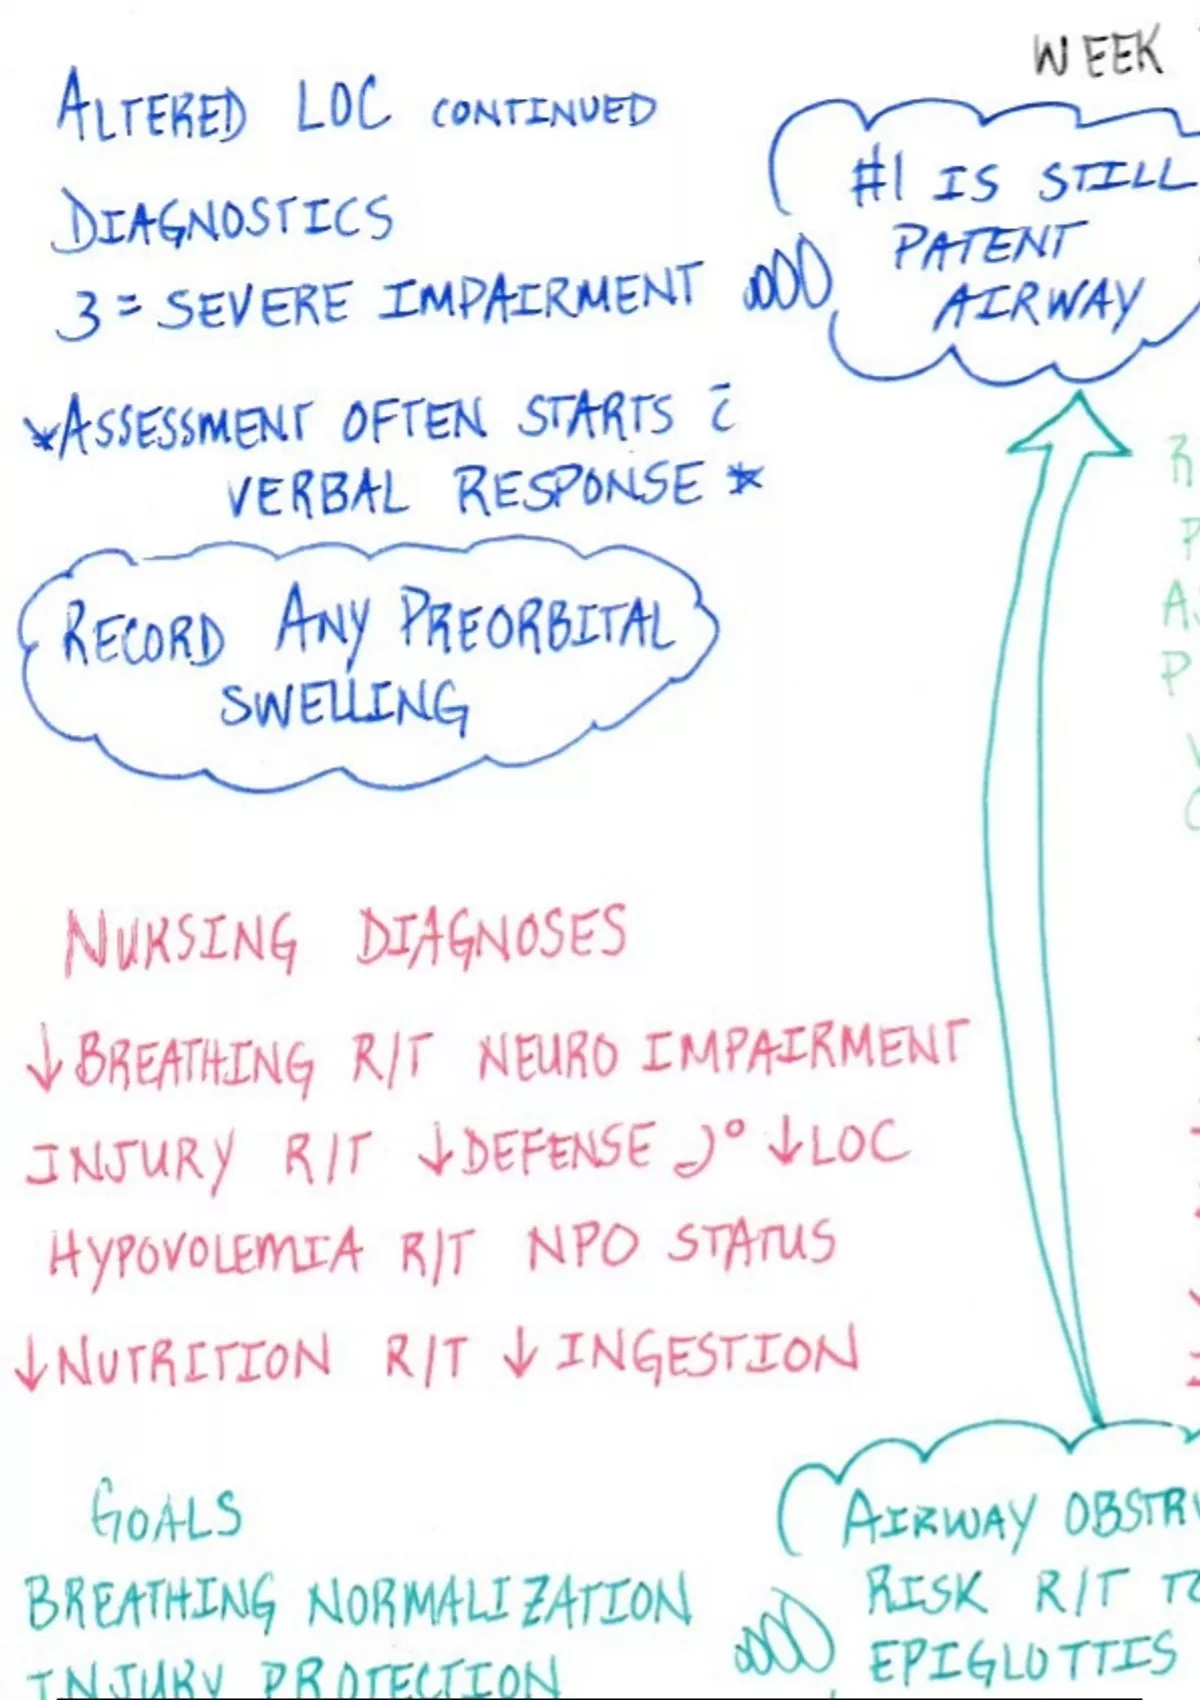 WEEK
ALTERED LOC CONTINUED
DIAGNOSTICS
3 = SEVERE IMPAIRMENT
#1 IS STILL
PATENT
AIRWAY
*ASSESSMENT OFTEN STARTS c̄
VERBAL RESPONSE *
RECORD ANY PREORBITAL
SWELLING
NURSING DIAGNOSES
↓ BREATHING R/T NEURO IMPAIRMENT
INJURY R/T ↓ DEFENSE 2° ↓ LOC
HYPOVOLEMIA R/T NPO STATUS
↓ NUTRITION R/T ↓ INGESTION
GOALS
BREATHING NORMALIZATION
INJURY PROTECTION
AIRWAY OBSTR
RISK R/T
EPIGLOTTIS